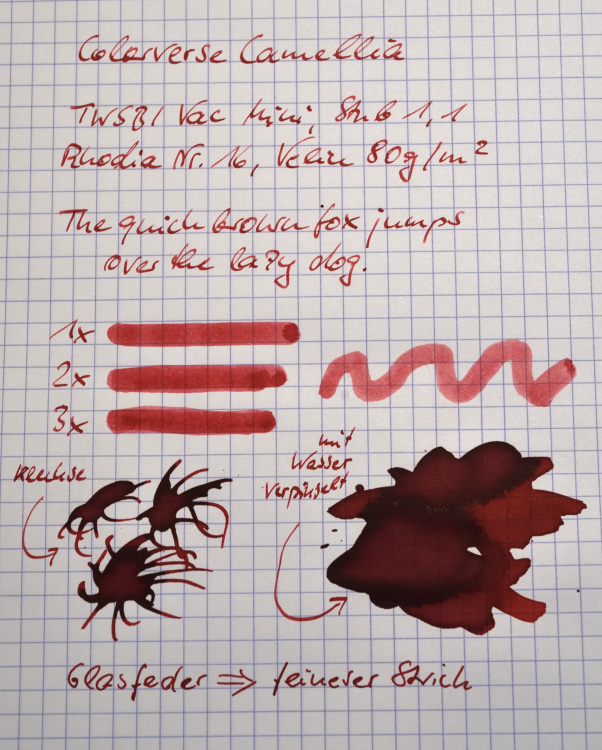 Colorverse Camellia
TWSBI Vac Mini, Stub 1,1
Rhodia Nr. 16, Velin 80g/m²
The quick brown fox jumps
over the lazy dog.
1x
2x
3x
Kleckse
mit
Wasser
verpinselt
Glasfeder ⇒ feinerer Strich